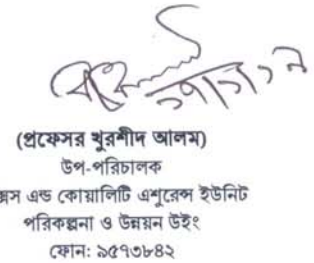 (প্রফেসর খুরশীদ আলম)
উপ-পরিচালক
এন্ড কোয়ালিটি এশুরেন্স ইউনিট
পরিকল্পনা ও উন্নয়ন উইং
ফোন: ৯৫৭৩৮৪২